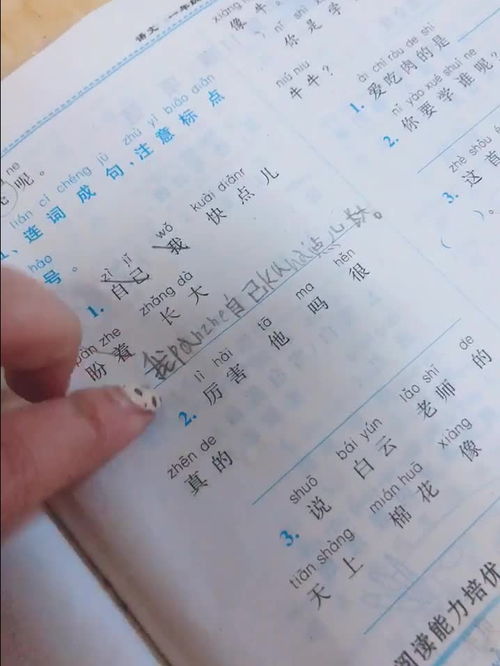 语文 一年级
ne
呢。
lián cí chéng jù zhù yì biāo diǎn
、连词成句,注意标点
hào
号。
zì jǐ wǒ kuài diǎnr
1. 自己 我 快点儿
zhǎng dà
长大
pàn zhe
盼着
我pànzhe自己
lì hài tā ma hěn
2. 厉害 他 吗 很
zhēn de
真的
shuō bái yún lǎo shī de
3. 说 白云 老师 的
tiān shàng mián huā xiàng
天上 棉花 像
像牛
nǐ shì
你是学
niú niu
牛牛?
ài chī ròu de shì
1. 爱吃肉的是
nǐ yào xué shuí ne
2. 你要学谁呢?
zhè shǒu
3. 这首
( )。
阅读能力培优